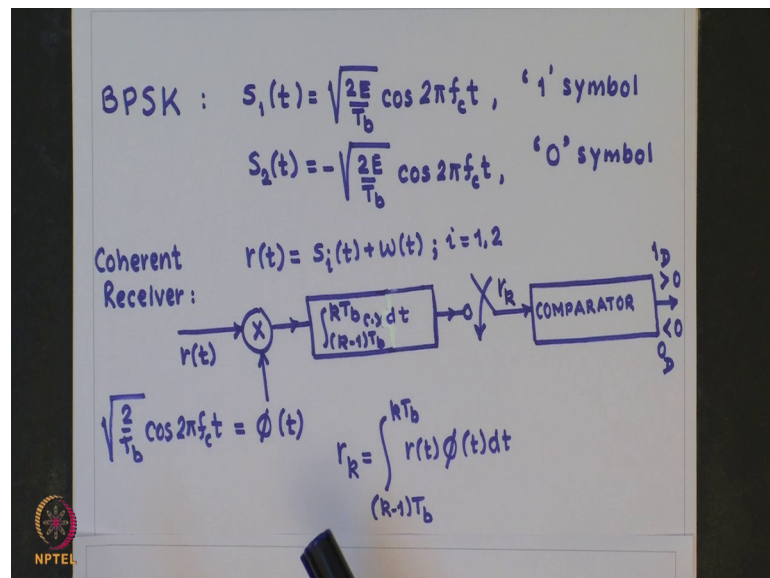 BPSK : S₁(t) = √(2E/T_b) cos 2πf_c t , '1' symbol
S₂(t) = -√(2E/T_b) cos 2πf_c t , '0' symbol
Coherent Receiver :
r(t) = s_i(t) + w(t) ; i = 1, 2
r(t)
X
∫_{(k-1)T_b}^{kT_b} (.) dt
r_k
COMPARATOR
1_D
>0
<0
0_D
√(2/T_b) cos 2πf_c t = ϕ(t)
r_k = ∫_{(k-1)T_b}^{kT_b} r(t) ϕ(t) dt
NPTEL